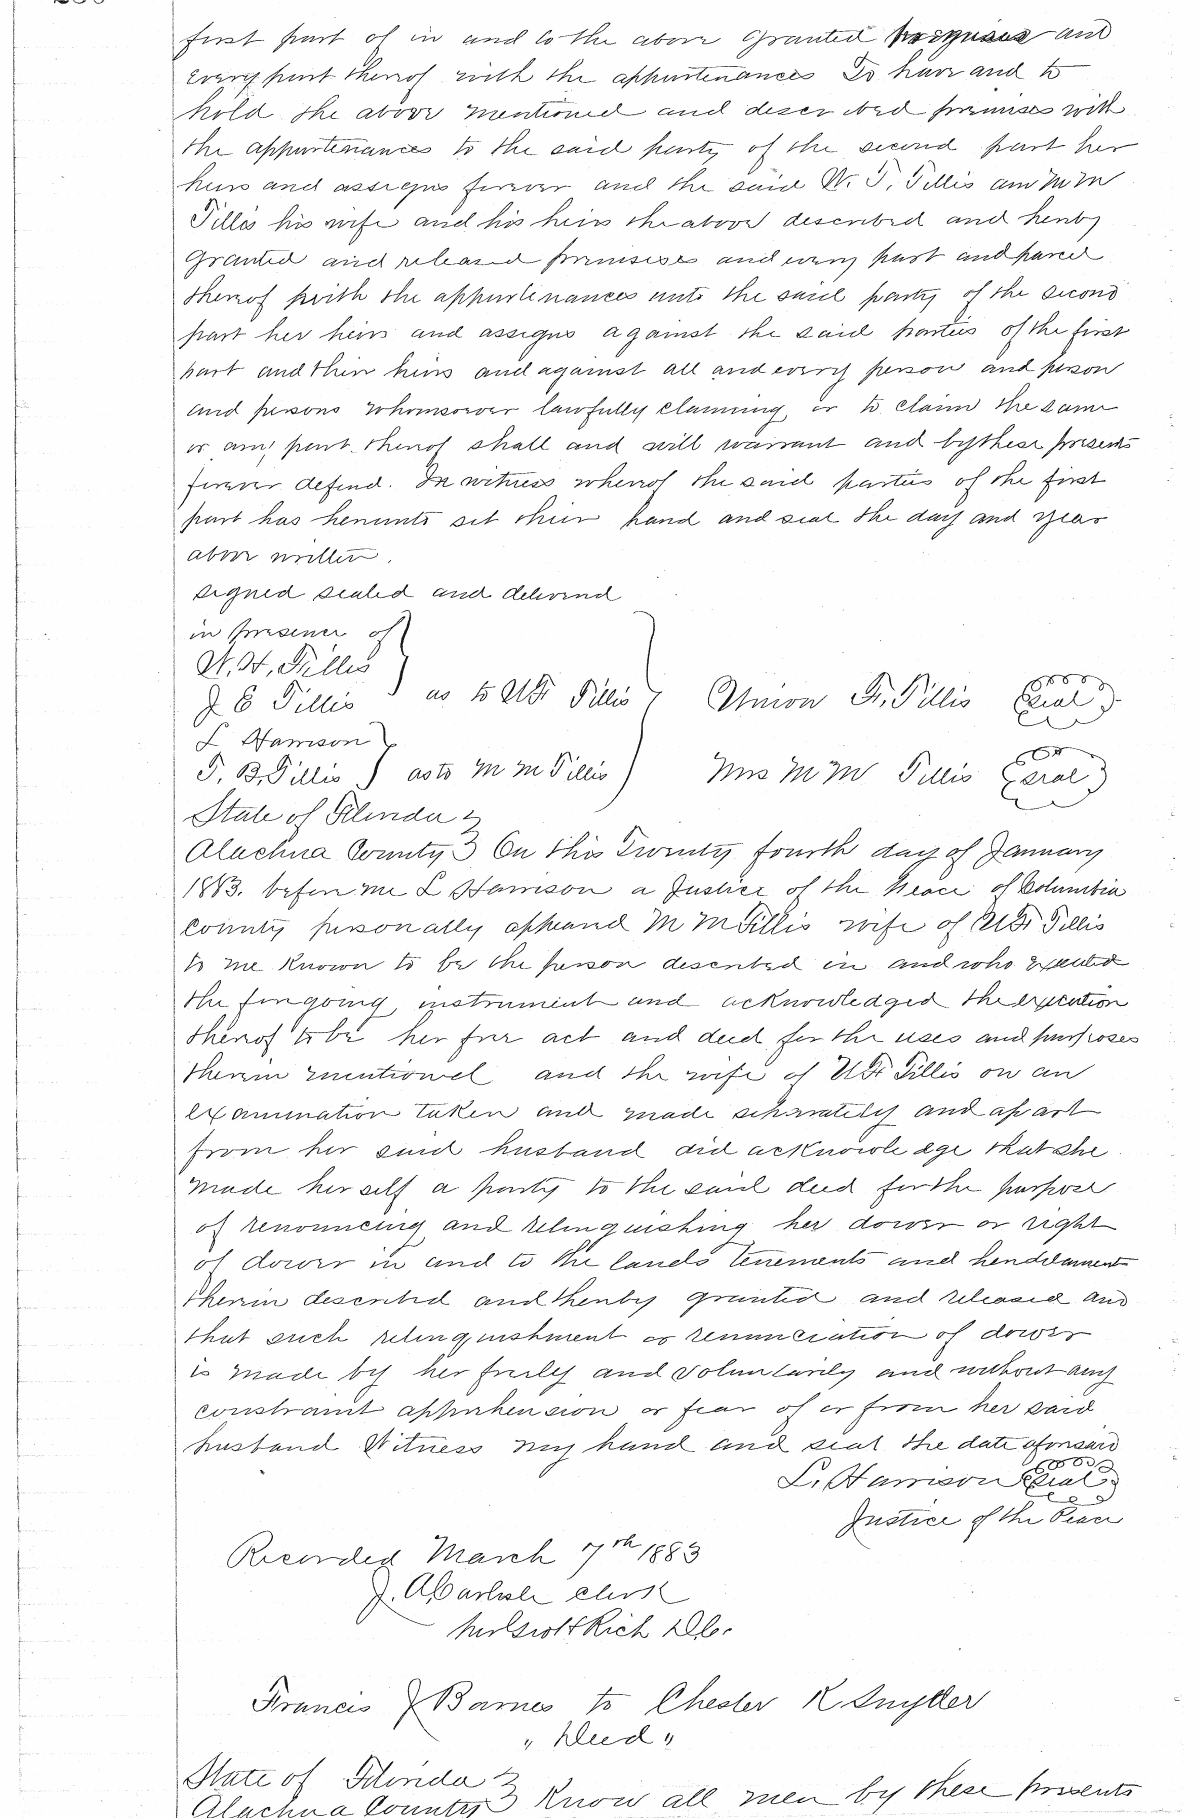 first part of in and to the above granted premises and
every part thereof with the appurtenances To have and to
hold the above mentioned and described premises with
the appurtenances to the said party of the second part her
heirs and assigns forever and the said W. F. Tillis and M M
Tillis his wife and his heirs the above described and hereby
granted and released premises and every part and parcel
thereof with the appurtenances unto the said party of the second
part her heirs and assigns against the said parties of the first
part and their heirs and against all and every person and person
and persons whomsoever lawfully claiming or to claim the same
or any part thereof shall and will warrant and by these presents
forever defend. In witness whereof the said parties of the first
part has hereunto set their hand and seal the day and year
above written.
signed sealed and delivered
in presence of
W. H. Tillis
J E Tillis } as to U F Tillis } Union F. Tillis (Seal)
L Harrison
T. B. Tillis } as to M M Tillis ) Mrs M M Tillis (Seal)
State of Florida }
Alachua County } On this Twenty fourth day of January
1883. before me L Harrison a Justice of the Peace of Columbia
County personally appeared M M Tillis wife of U F Tillis
to me known to be the person described in and who executed
the foregoing instrument and acknowledged the execution
thereof to be her free act and deed for the uses and purposes
therein mentioned and the wife of U F Tillis on an
examination taken and made separately and apart
from her said husband did acknowledge that she
made herself a party to the said deed for the purpose
of renouncing and relinquishing her dower or right
of dower in and to the lands tenements and hereditaments
therein described and thereby granted and released and
that such relinquishment or renunciation of dower
is made by her freely and voluntarily and without any
constraint apprehension or fear of or from her said
husband Witness my hand and seal the date aforesaid
L. Harrison (Seal)
Justice of the Peace
Recorded March 7th 1883
J. A Carlisle Clerk
Rich D.C.
Francis J Barnes to Chester K Snyder
" Deed "
State of Florida }
Alachua County } Know all men by these presents